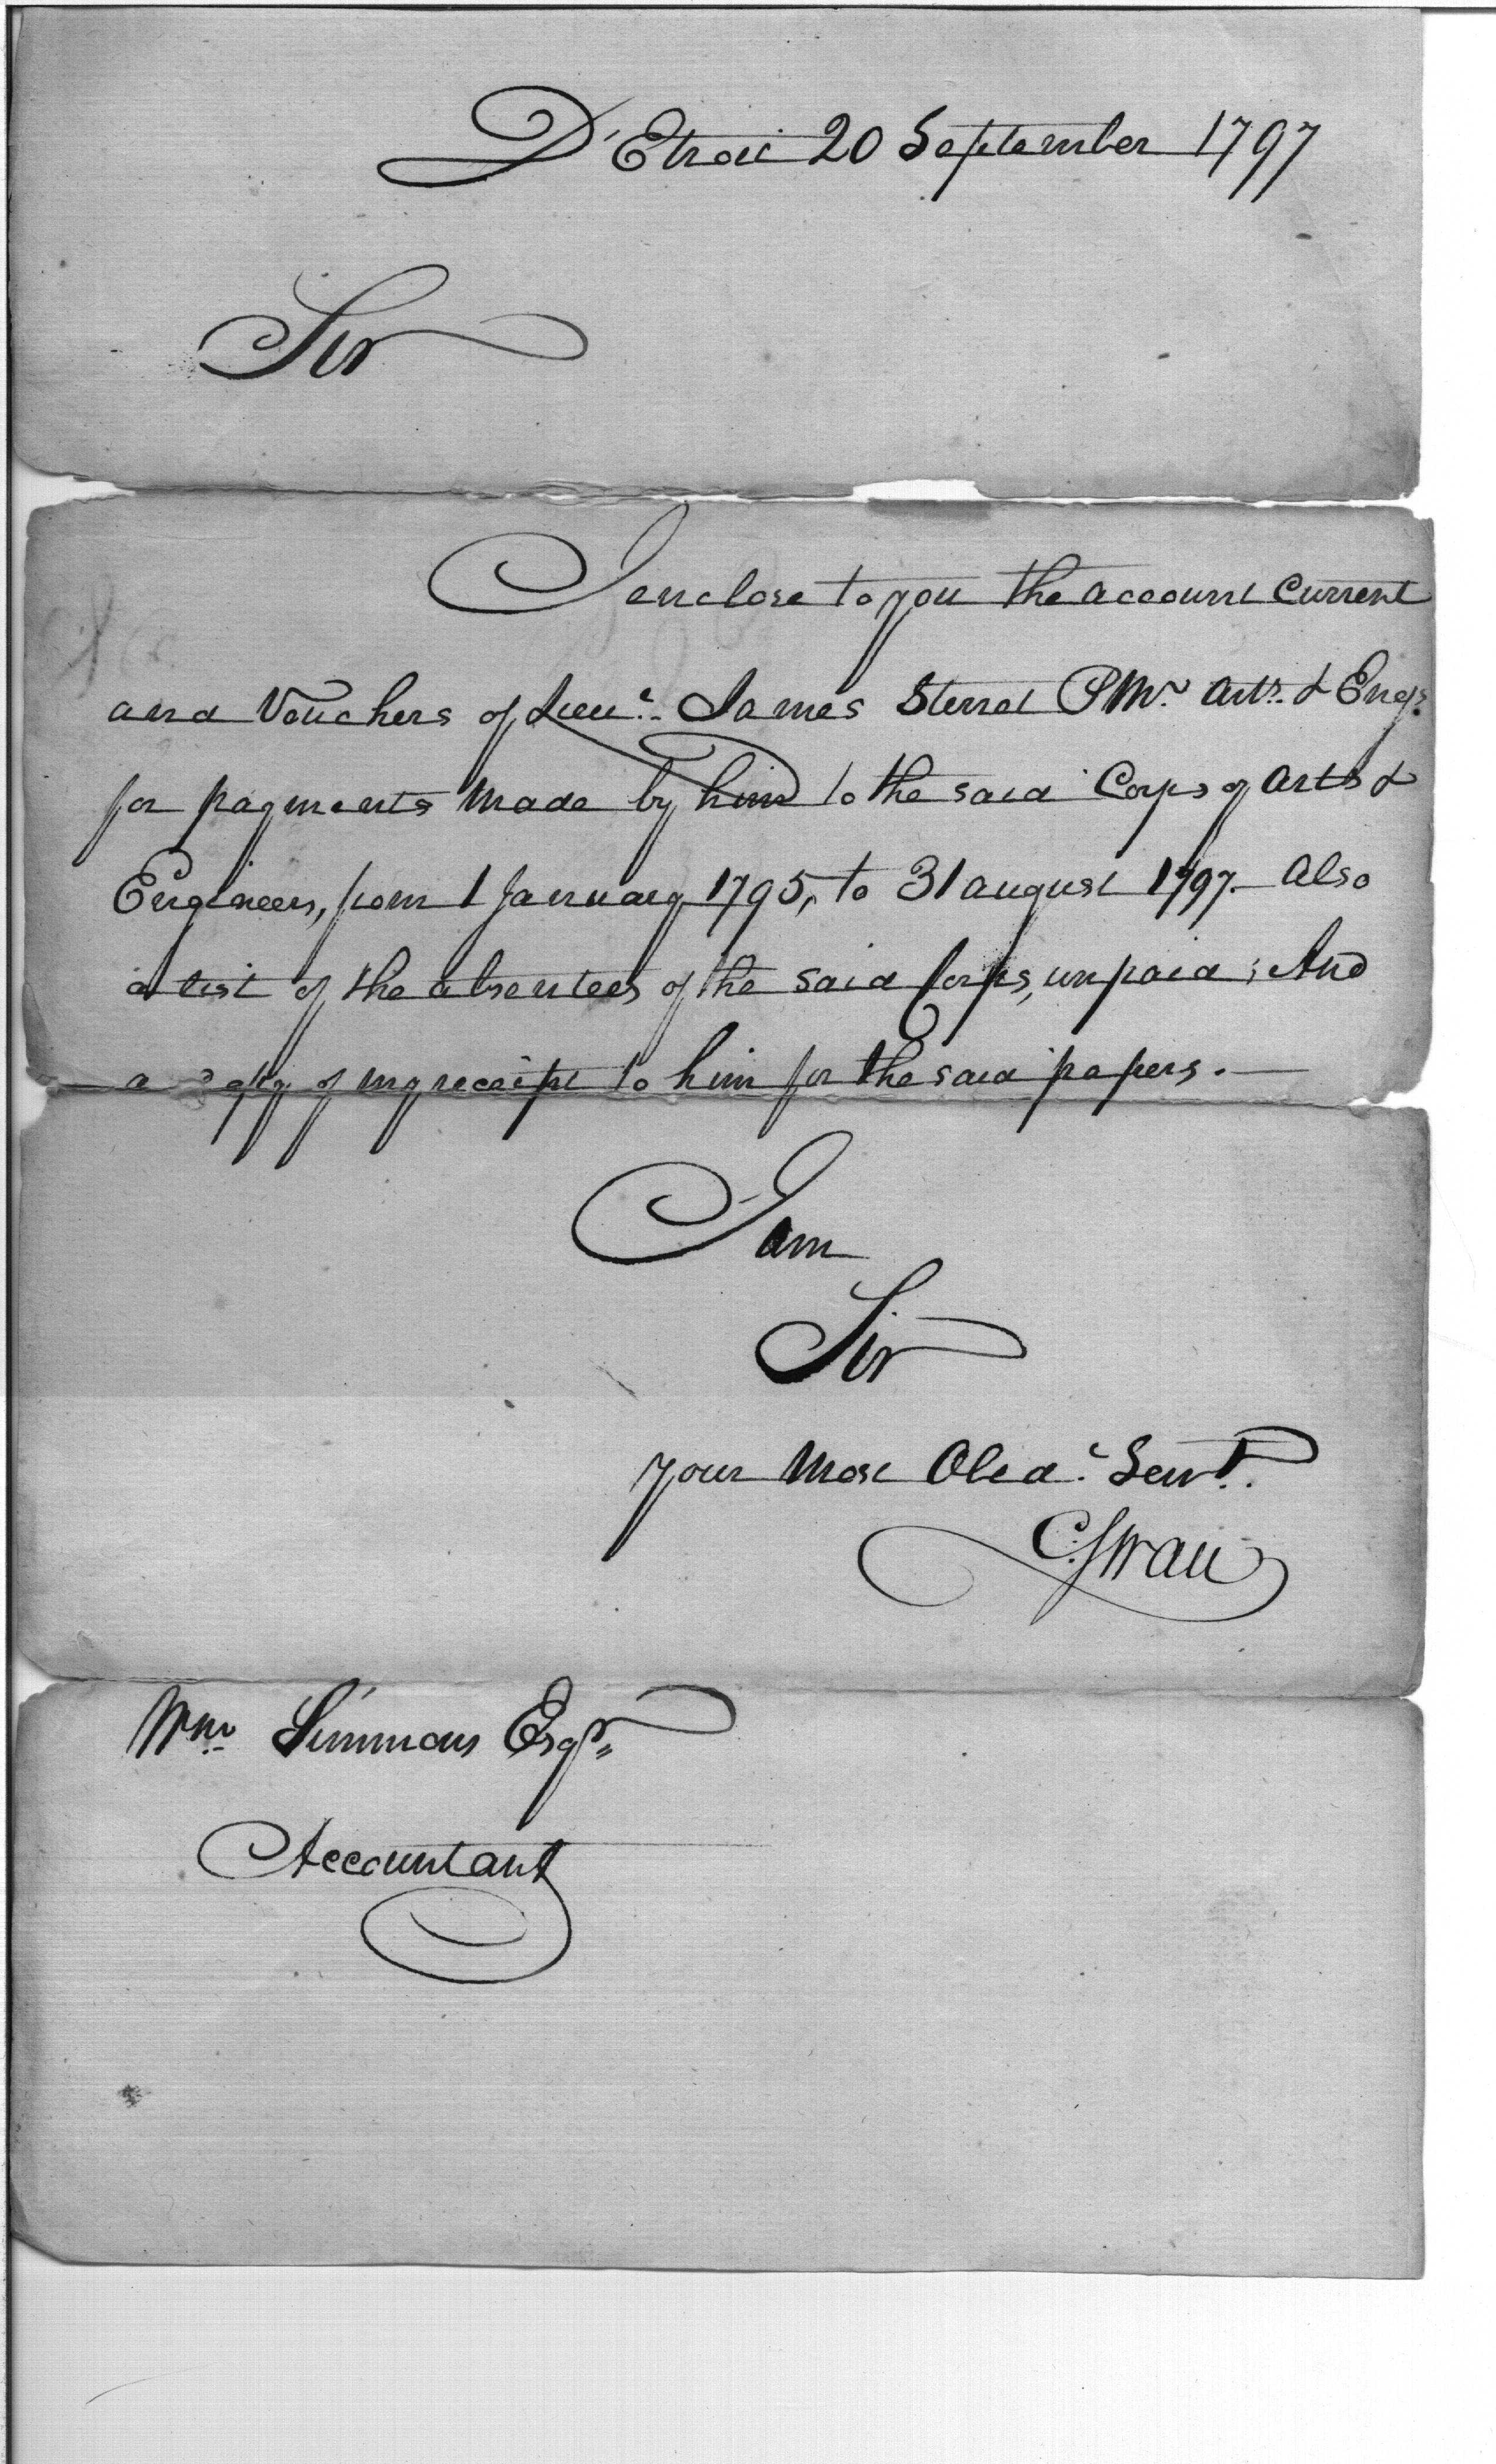 D'Etroit 20 September 1797
Sir
I enclose to you the account Current
and Vouchers of Lieut. James Sterret PMr. Arts. & Engs.
for payments made by him to the said Corps of Arts &
Engineers, from 1 January 1795, to 31 august 1797. Also
a list of the absentees of the said Corps, unpaid; And
a Copy of my receipt to him for the said papers.—
I am
Sir
your Most Obedt. Servt.
C. Swan
Wm. Simmons Esqr.
Accountant